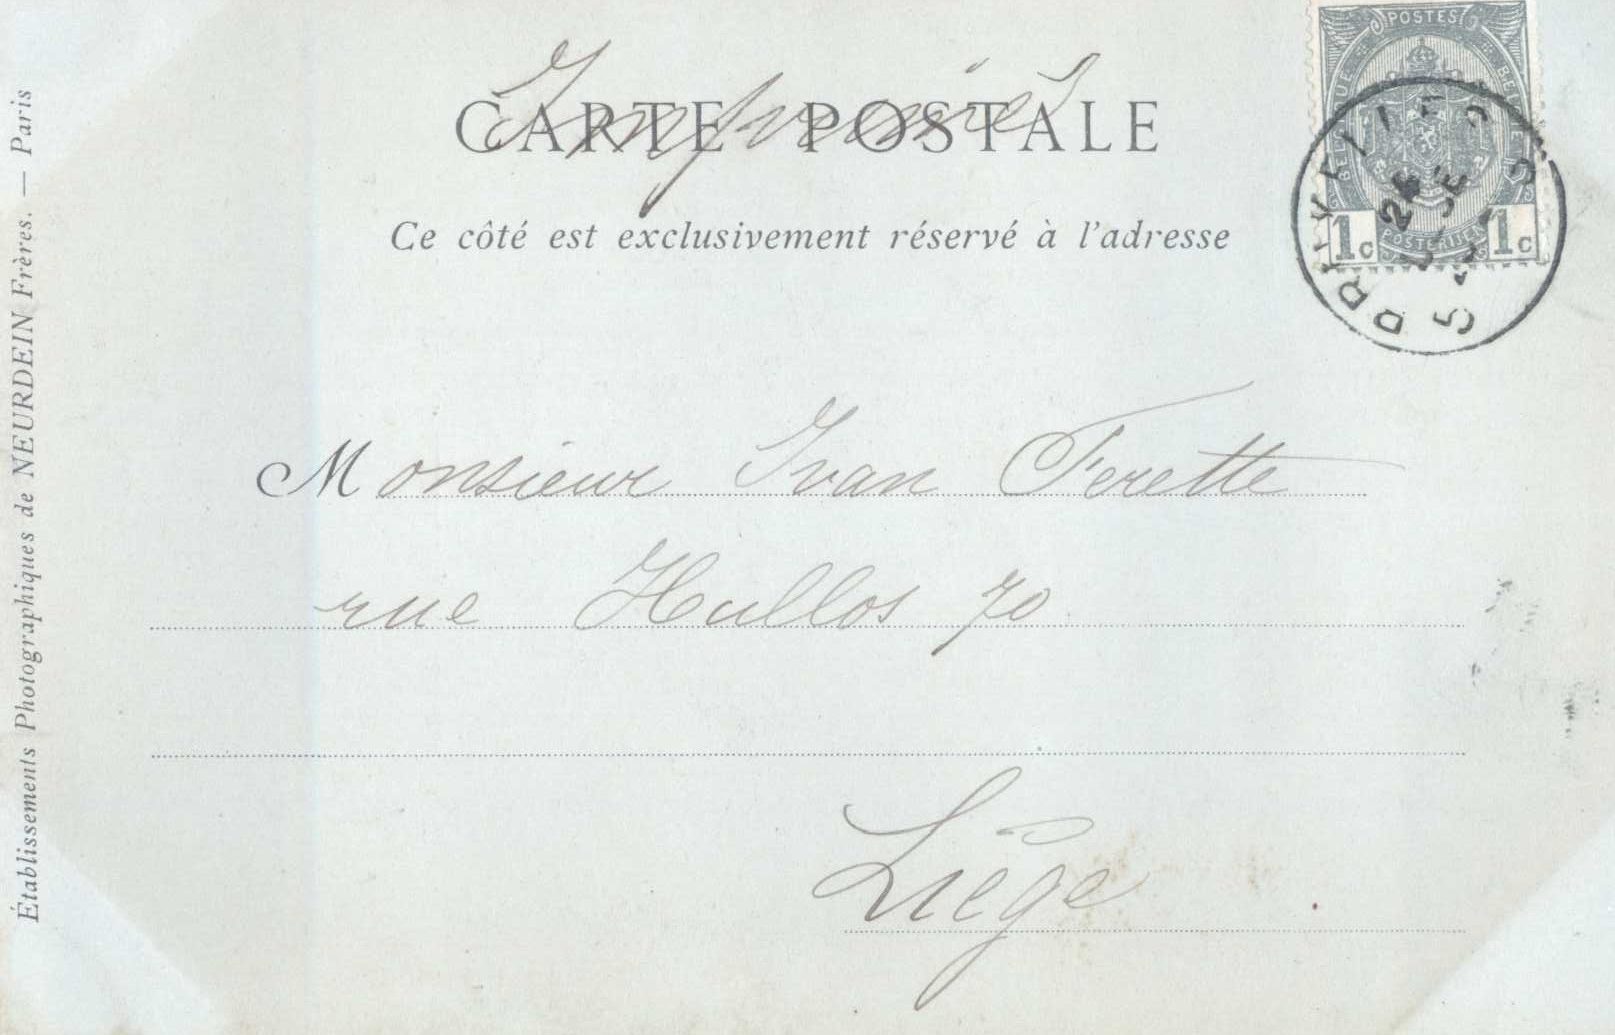 Imprimés
CARTE POSTALE
Ce côté est exclusivement réservé à l'adresse
POSTES
BELGIQUE
1c POSTERIJEN 1c
Monsieur Ivan Ferette
rue Hullos 70
Liége
Établissements Photographiques de NEURDEIN Frères. — Paris